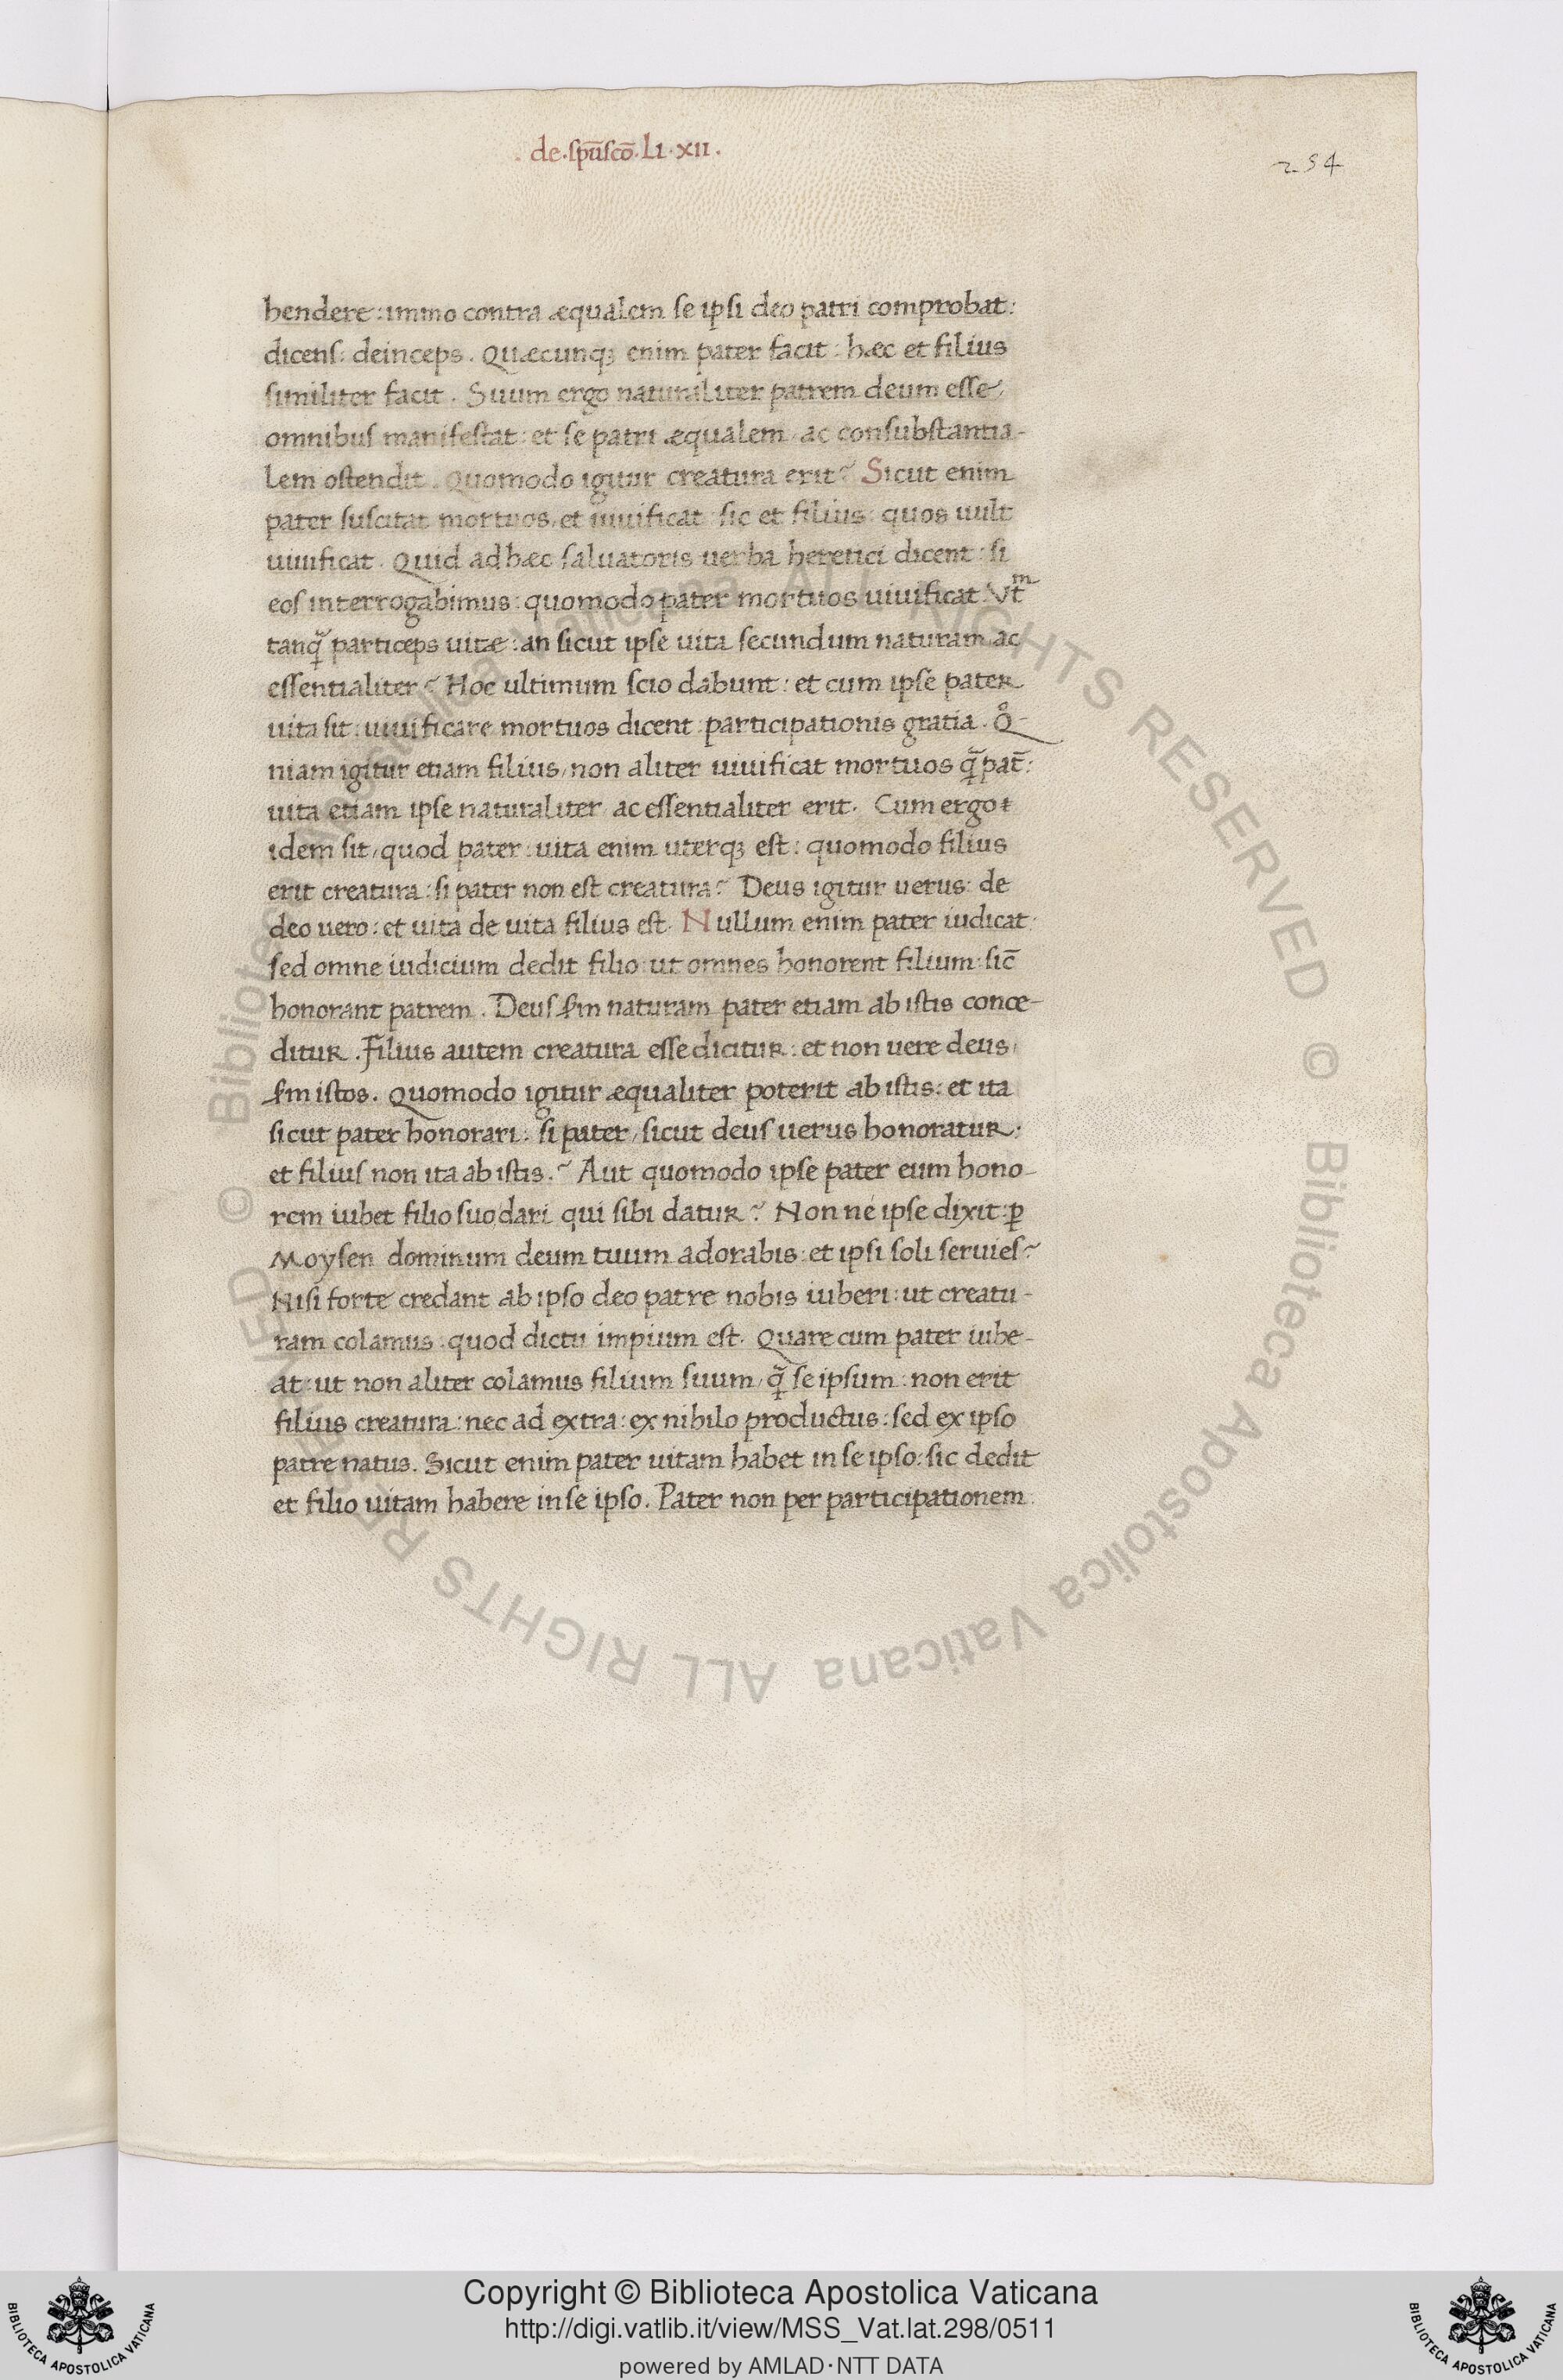 de·sp̄usco̅·Li·xii·
254
hendere: immo contra æqualem se ipsi deo patri comprobat:
dicens: deinceps. Quæcunqꝫ enim pater facit: hæc et filius
similiter facit. Suum ergo naturaliter patrem deum esse,
omnibus manifestat: et se patri æqualem, ac consubstantia-
lem ostendit. Quomodo igitur creatura erit? Sicut enim
pater suscitat mortuos, et uiuificat: sic et filius: quos uult
uiuificat. Quid ad hæc saluatoris uerba heretici dicent: si
eos interrogabimus: quomodo pater mortuos uiuificat Vtᵐ
tanq̃ particeps uitæ: an sicut ipse uita secundum naturam ac
essentialiter? Hoc ultimum scio dabunt: et cum ipse pater
uita sit: uiuificare mortuos dicent: participationis gratia. Qº-
niam igitur etiam filius, non aliter uiuificat mortuos q̃ pat̄:
uita etiam ipse naturaliter, ac essentialiter erit. Cum ergo ꝉ
idem sit, quod pater: uita enim uterqꝫ est: quomodo filius
erit creatura: si pater non est creatura? Deus igitur uerus: de
deo uero: et uita de uita filius est. Nullum enim pater iudicat:
sed omne iudicium dedit filio: ut omnes honorent filium: sic̄
honorant patrem. Deus ẜm naturam pater etiam ab istis conce-
ditur. Filius autem creatura esse dicitur: et non uere deus,
ẜm istos. Quomodo igitur æqualiter poterit ab istis: et ita
sicut pater honorari: si pater, sicut deus uerus honoratur:
et filius non ita ab istis.? Aut quomodo ipse pater eum hono-
rem iubet filio suo dari qui sibi datur? Non né ipse dixit: ꝑ
Moysen dominum deum tuum adorabis: et ipsi soli seruies?
Nisi forte credant ab ipso deo patre nobis iuberi: ut creatu-
ram colamus: quod dictu impium est. Quare cum pater iube-
at: ut non aliter colamus filium suum, q̃ se ipsum: non erit
filius creatura: nec ad extra: ex nihilo productus: sed ex ipso
patre natus. Sicut enim pater uitam habet in se ipso: sic dedit
et filio uitam habere in se ipso. Pater non per participationem
© Biblioteca Apostolica Vaticana ALL RIGHTS RESERVED © Biblioteca Apostolica Vaticana ALL RIGHTS RESERVED
Copyright © Biblioteca Apostolica Vaticana
http://digi.vatlib.it/view/MSS_Vat.lat.298/0511
powered by AMLAD·NTT DATA
BIBLIOTECA APOSTOLICA VATICANA
BIBLIOTECA APOSTOLICA VATICANA